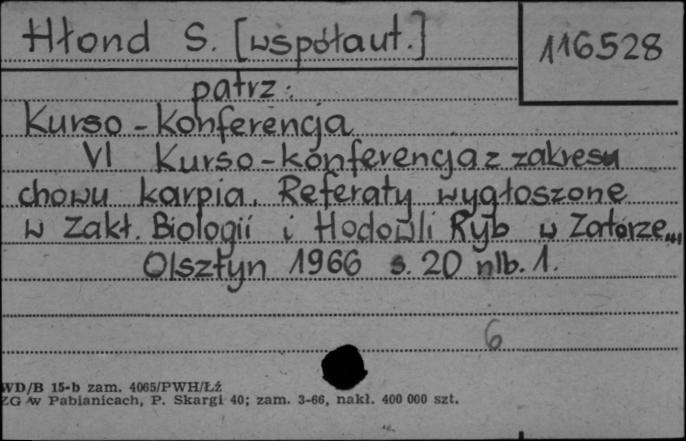 Hłond S. [współaut.]
116528
patrz:
Kurso-Konferencja
VI Kurso-konferencja z zakresu
chowu karpia. Referaty wygłoszone
w Zakł. Biologii i Hodowli Ryb w Zatorze...
Olsztyn 1966 s. 20 nlb. 1.
6
WD/B 15-b zam. 4065/PWH/Łź
ZG w Pabianicach, P. Skargi 40; zam. 3-66, nakł. 400 000 szt.